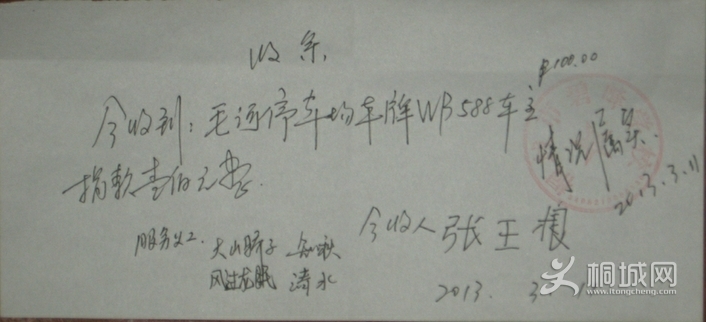 收条
¥100.00
今收到：毛河停车场车牌WB588车主
捐款壹佰元整.
情况属实.
2013.3.11
今收人 张王
服务义工. 大山骄子 知秋
风过龙眠 清水
2013. 3
桐城网
www.itongcheng.com